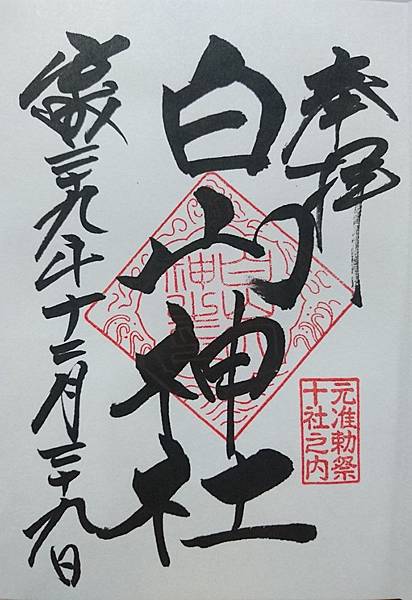 奉拝
白山神社
白山
神社
元准勅祭
十社之内
二十九年十二月二十九日